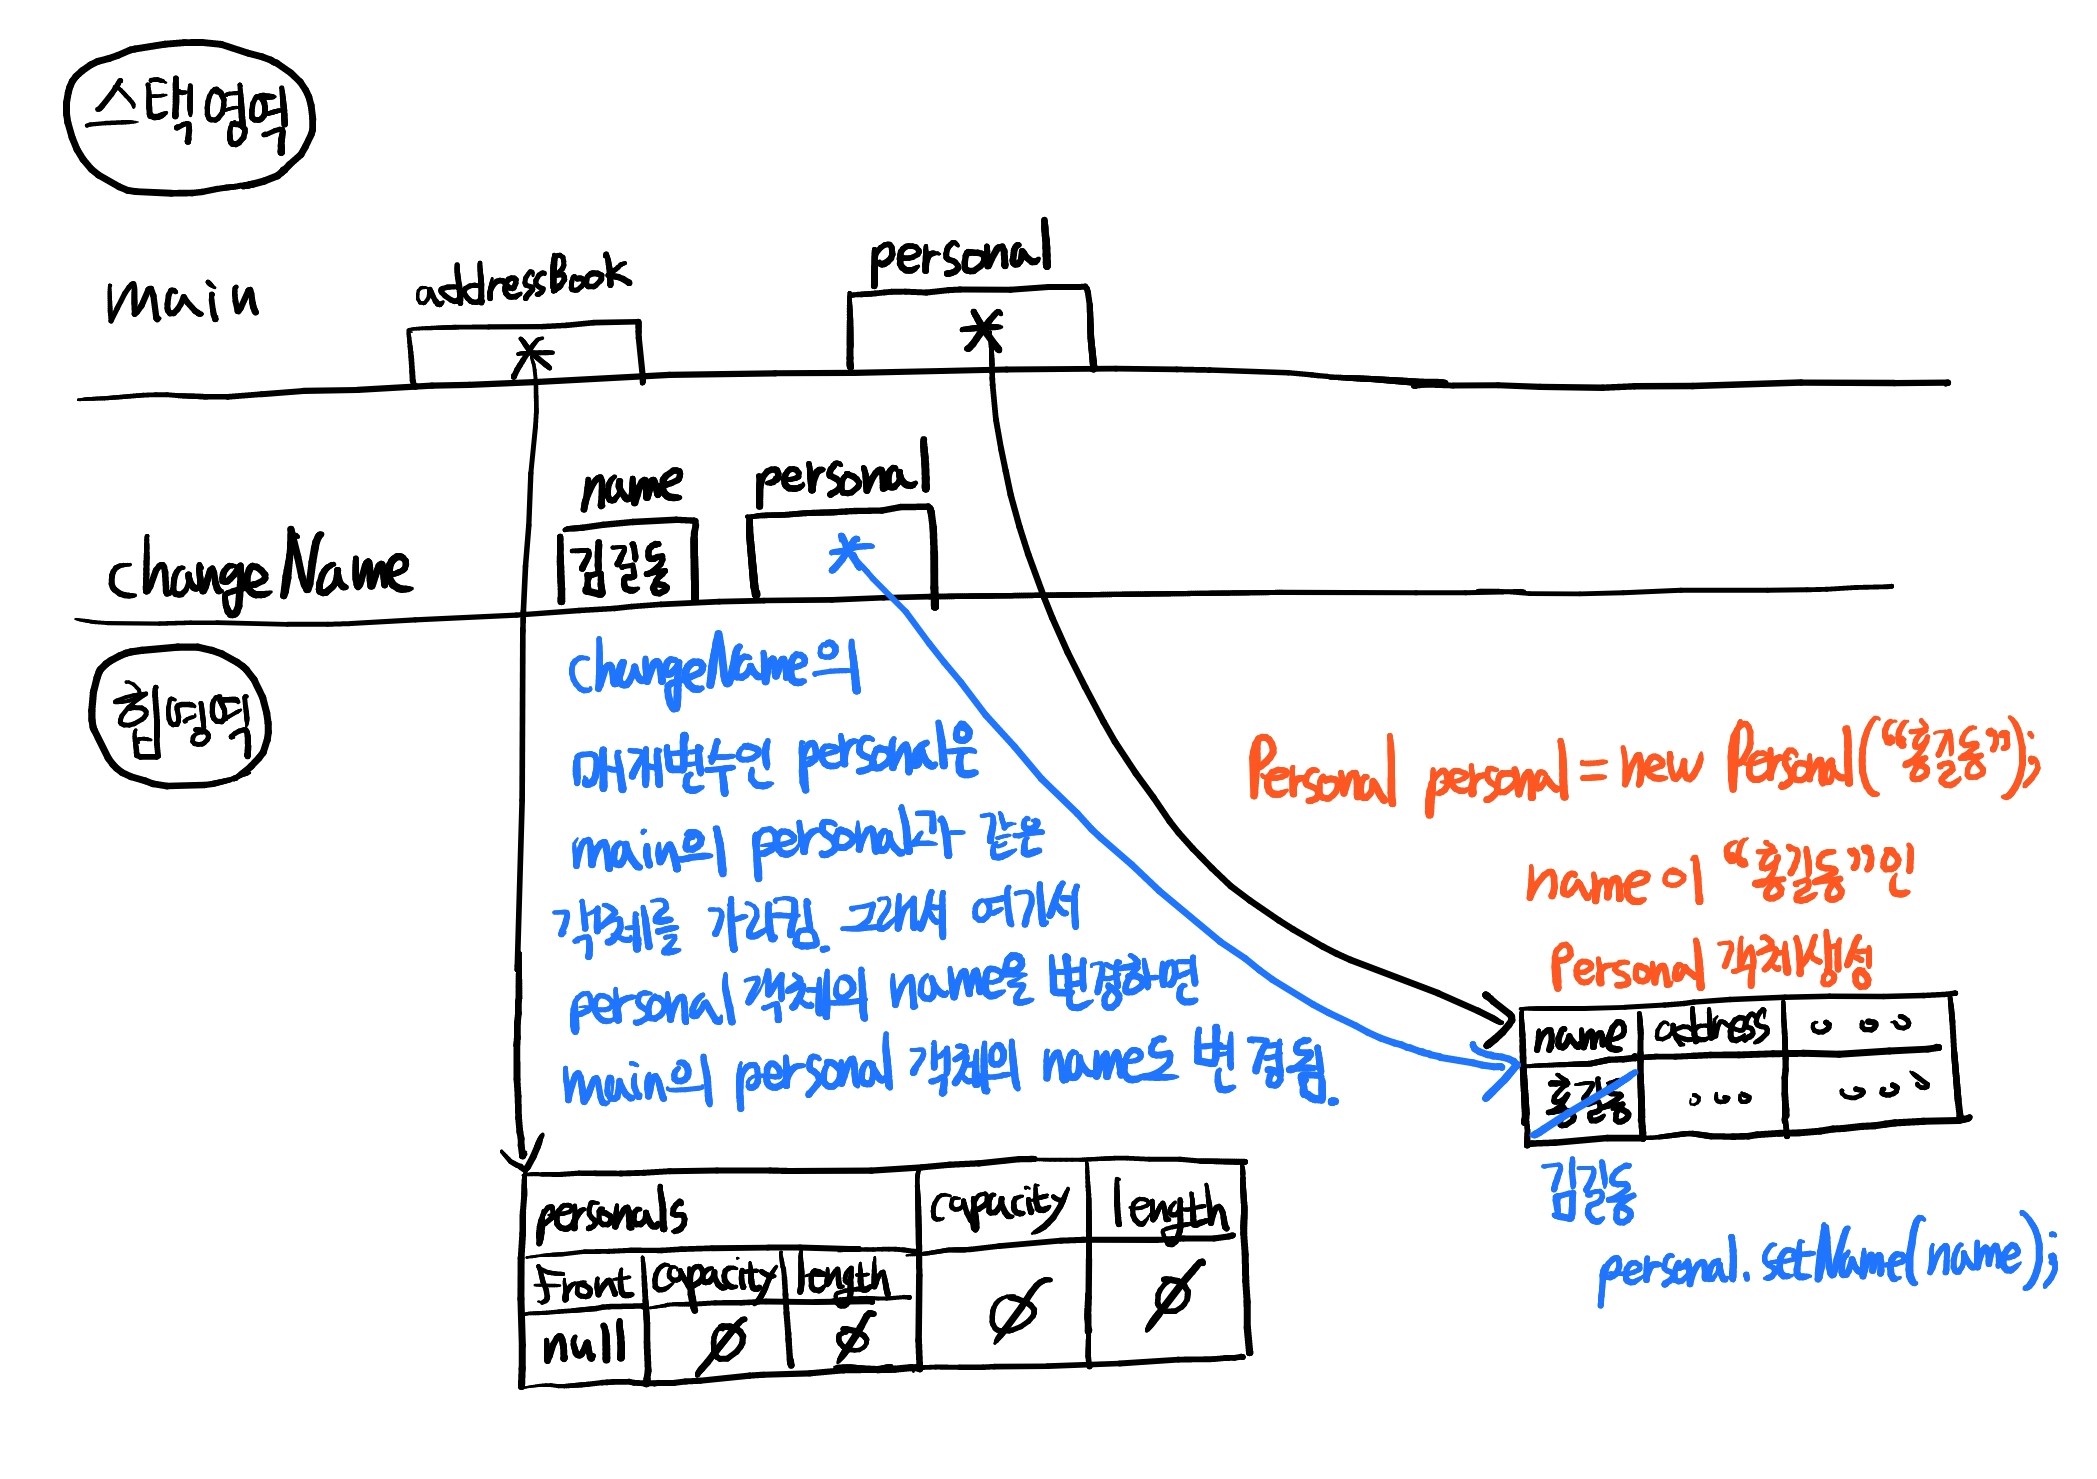 스택영역
main
addressBook
personal
*
*
changeName
name
personal
김길동
*
힙영역
changeName의
매개변수인 personal은
main의 personal과 같은
객체를 가리킴. 그래서 여기서
personal 객체의 name을 변경하면
main의 personal 객체의 name도 변경됨.
Personal personal = new Personal("홍길동");
name이 "홍길동"인
Personal 객체생성
name address ...
홍길동 ... ...
김길동
personal.setName(name);
personals capacity length
front capacity length
null 0 0 0 0